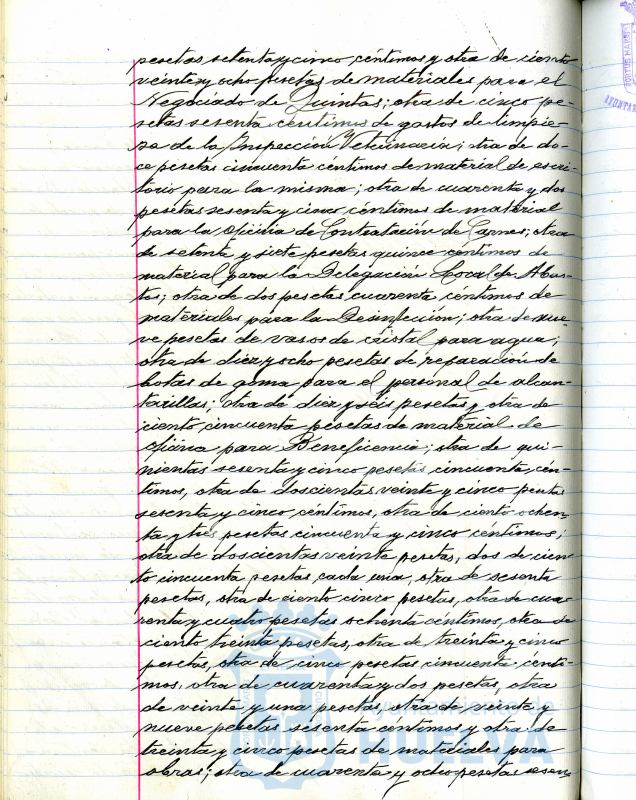 pesetas setenta y cinco céntimos y otra de ciento
veinte y ocho pesetas de materiales para el
Negociado de Quintas; otra de cinco pe-
setas sesenta céntimos de gastos de limpie-
za de la Inspección Veterinaria; otra de do-
ce pesetas cincuenta céntimos de material de escri-
torio para la misma; otra de cuarenta y dos
pesetas sesenta y cinco céntimos de material
para la oficina de Contratación de Carnes; otra
de setenta y siete pesetas quince céntimos de
material para la Delegación Local de Abas-
tos; otra de dos pesetas cuarenta céntimos de
materiales para la Desinfección; otra de nue-
ve pesetas de vasos de cristal para agua;
otra de diez y ocho pesetas de reparación de
botas de goma para el personal de alcan-
tarillas; otra de diez y séis pesetas y otra de
ciento cincuenta pesetas de material de
oficina para Beneficencia; otra de qui-
nientas sesenta y cinco pesetas cincuenta cén-
timos, otra de doscientas veinte y cinco pesetas
sesenta y cinco céntimos, otra de ciento ochen-
ta y tres pesetas cincuenta y cinco céntimos;
otra de doscientas veinte pesetas, dos de cien-
to cincuenta pesetas cada una, otra de sesenta
pesetas, otra de ciento cinco pesetas, otra de cua-
renta y cuatro pesetas ochenta céntimos, otra de
ciento treinta pesetas, otra de treinta y cinco
pesetas, otra de cinco pesetas cincuenta cénti-
mos, otra de cuarenta y dos pesetas, otra
de veinte y una pesetas, otra de veinte y
nueve pesetas sesenta céntimos y otra de
treinta y cinco pesetas de materiales para
obras; otra de cuarenta y ocho pesetas sesen-
Ayuntamiento de
HUELVA